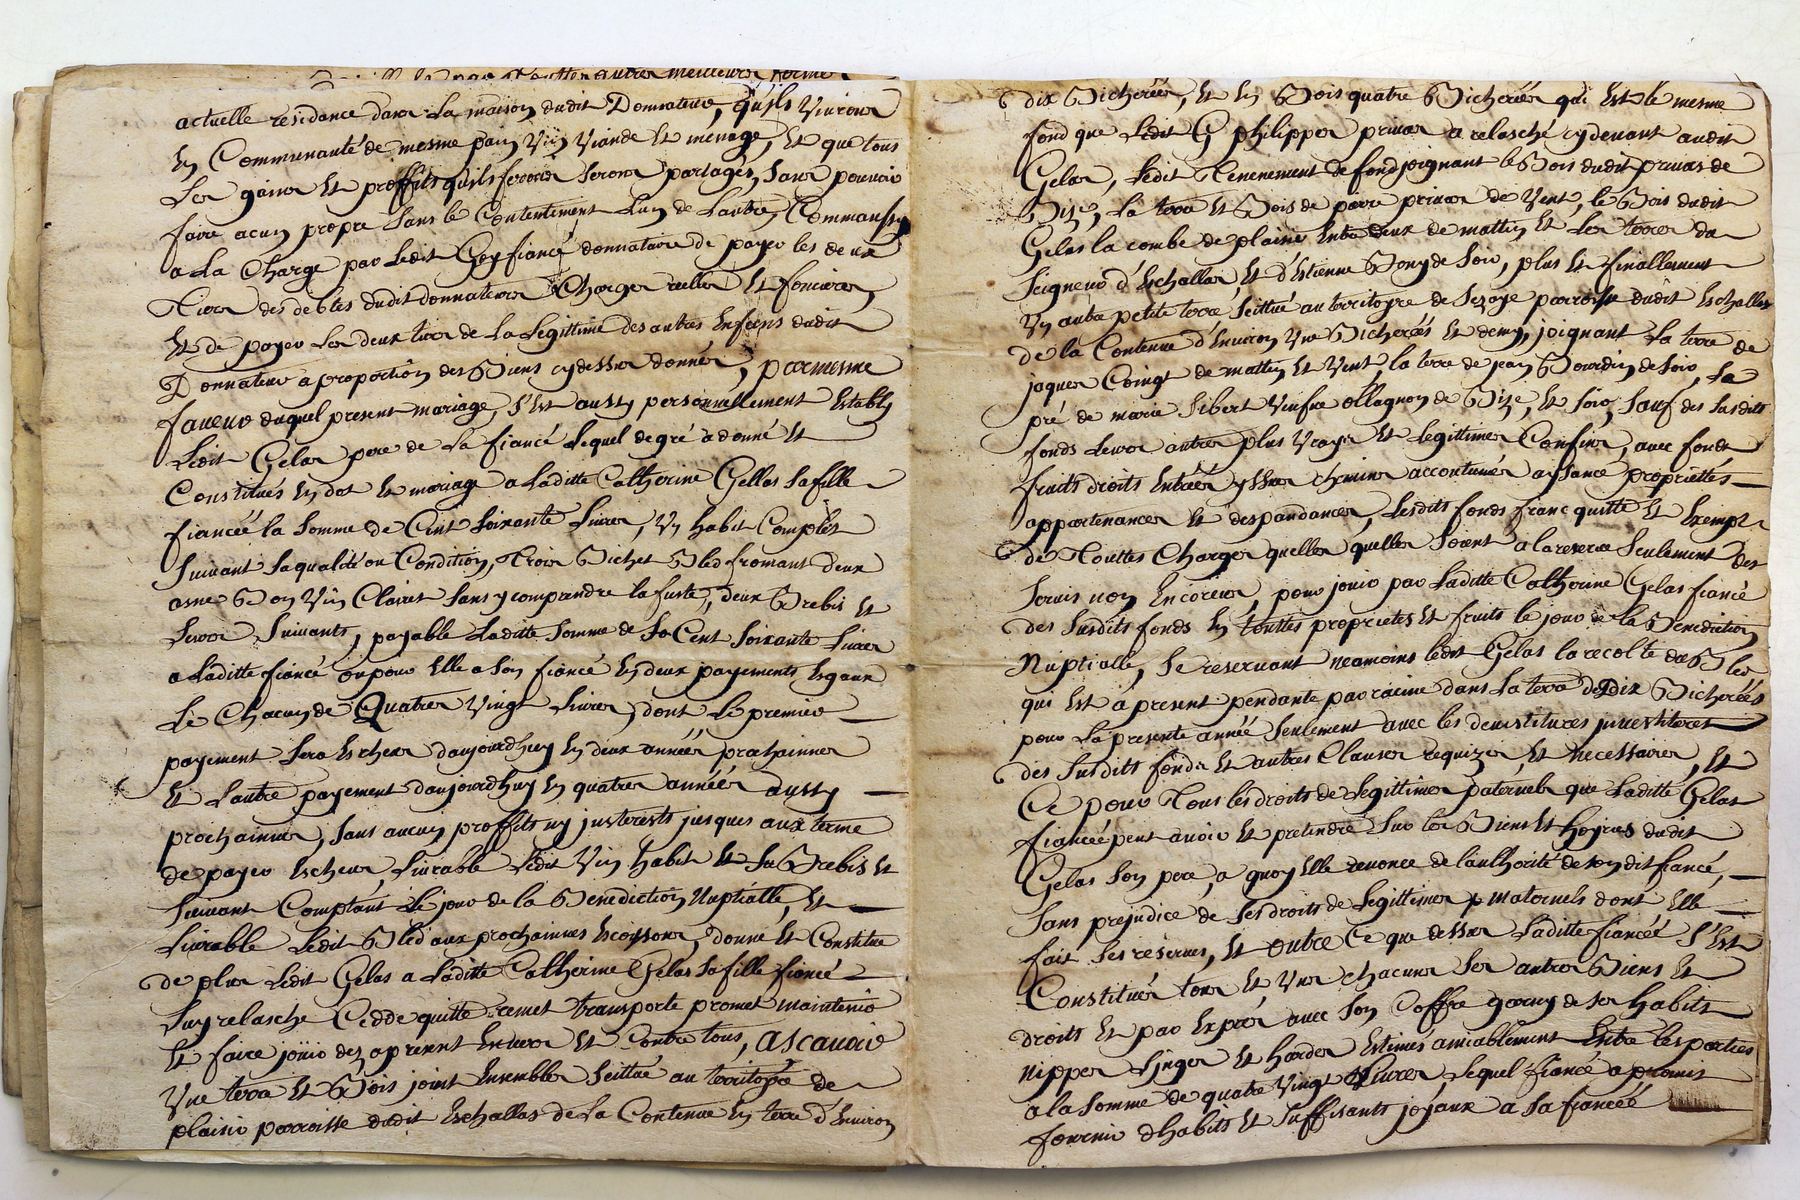 autres meilleurs forme
actuelle residance dans La maison dudit Donnateur, quils Vivrons
En Communauté de mesme pain Vin Viande Et menage, Et que tous
Les gains Et proffits quils ferons Seront partagés, Sans pouvoir
faire acun propre Sans le Contentement Lun de Lautre, Comm aussy
a La Charge par Ledit Gey fiancé donnataire de payer les deux
Tiers des debtes dudit donnateur Charges reelles Et foncieres,
Et de payer Les deux tiers de La Legittime des autres Enfans dudit
Donnateur a proportion des Biens cydessus donnés, par mesme
faveur duquel present mariage, S'Est aussy personnellement Estably
Ledit Gelas pere de La fiancé Lequel de gré a donné Et
Constitués En dot Et mariage a Laditte Catherine Gellas Sa fille
fiancéé la Somme de Cent Soixante Livres, Un habit Complet
Suivant Sa qualité ou Condition, Trois Bichet Bled fromant deux
asne Bon Vin Clairet Sans y comprendre la fuste, deux Brebis Et
Leurs Suivants, payable Laditte Somme de Cent Soixante Livres
a Laditte fiancé ou pour Elle a Son fiancé En deux payements Egaux
Le Chacun de Quatres Vingt Livres, dont Le premier
payement Sera Escheu daujourdhuy En deux années prochainnes
Et Lautre payement daujourdhuy En quatres annéés aussy
prochainnes, Sans aucun proffits ny justerests jusques aux terme
de payer Escheus, Livrable Ledit Vin habit Et Brebis Et
Suivant Comptant Le jour de la Benediction Nuptialle, Et
Livrable Ledit Bled aux prochainnes Escoissons, donne Et Constitue
de plus Ledit Gelas a Laditte Catherine Gelas Sa fille fiancé
Luy relasche Cedde quitte remet transporte promet maintenir
Et faire jouir dez apresent Envers Et Contre tous, ascavoir
Une terre Et Bois joint Ensembles Scittué au territoire de
plaisir parroisse dudit Eschallas de La Contenue En terre d'Environ
dix Bicheréés, Et En Bois quatre Bicheréés qui Est le mesme
fond que Ledit G philippes privas a relasché cydevant audit
Gelas, Ledit Tenement de fond joignant le Bois dudit privas de
Bize, La terre Et Bois de pierre privas de Vent, le Bois dudit
Gelas la combe de plaine Entre deux de mattin Et Les terres du
Seigneur d'Eschallas Et d'Estienne Bony de Soir, plus Et finallement
Un autre petite terre Scittué au territoyre de Sezaye parroisse dudit Eschallas
de la Contenue d'Environ Une Bicheréés Et demy, joignant La terre de
jaques Coingt de mattin Et Vent, la terre de jean Bourdin de Soir, Le
pré de marie Sibert Veufve ollagnon de Bize, Et Soir, Sauf des Susdits
fonds Leurs autres plus Vrays Et Legittimes Confins, avec fonds
fruits droits Entréés yssues chemins accoutumés aysance proprietés
appartenances Et despandances, Lesdits fonds franc quitte Et Exempt
de Touttes Charges quelles quelles Soient a la reserve Seulement des
Servis non Encoreus, pour jouir par Laditte Catherine Gelas fiancé
des Susdits fonds En touttes proprietes Et fruits le jour de la Benediction
Nuptialle, Se reservant neamoins ledit Gelas la recolte du Bled
qui Est a present pendante par racine dans La terre de Dix Bicheréés
pour La presente année Seulement avec les devistitures jnvestitures
des Susdits fonds Et autres Clauses requizes, Et necessaires, Et
Ce pour Tous les droits de Legittimes paternels que Laditte Gelas
fiancéé peut avoir Et pretendre Sur les Biens Et Hoyries dudit
Gelas Son pere, a quoy Elle renonce de lauthorité de son dit fiancé,
Sans prejudice de Ses droits de Legittimes maternels dont Elle
fait Ses reserves, Et outre Ce que dessus Laditte fiancéé S'Est
Constitués tous Et Uns chacuns Ses autres Biens Et
droits Et par Exprés avec Son Coffre garny de Ses habits
nippes Linges Et hardes Estimés amiablement Entre les parties
a la Somme de quatre Vingt Livres, Lequel fiancé a promis
fournir dhabits Et Suffisants joyaux a Sa fiancéé